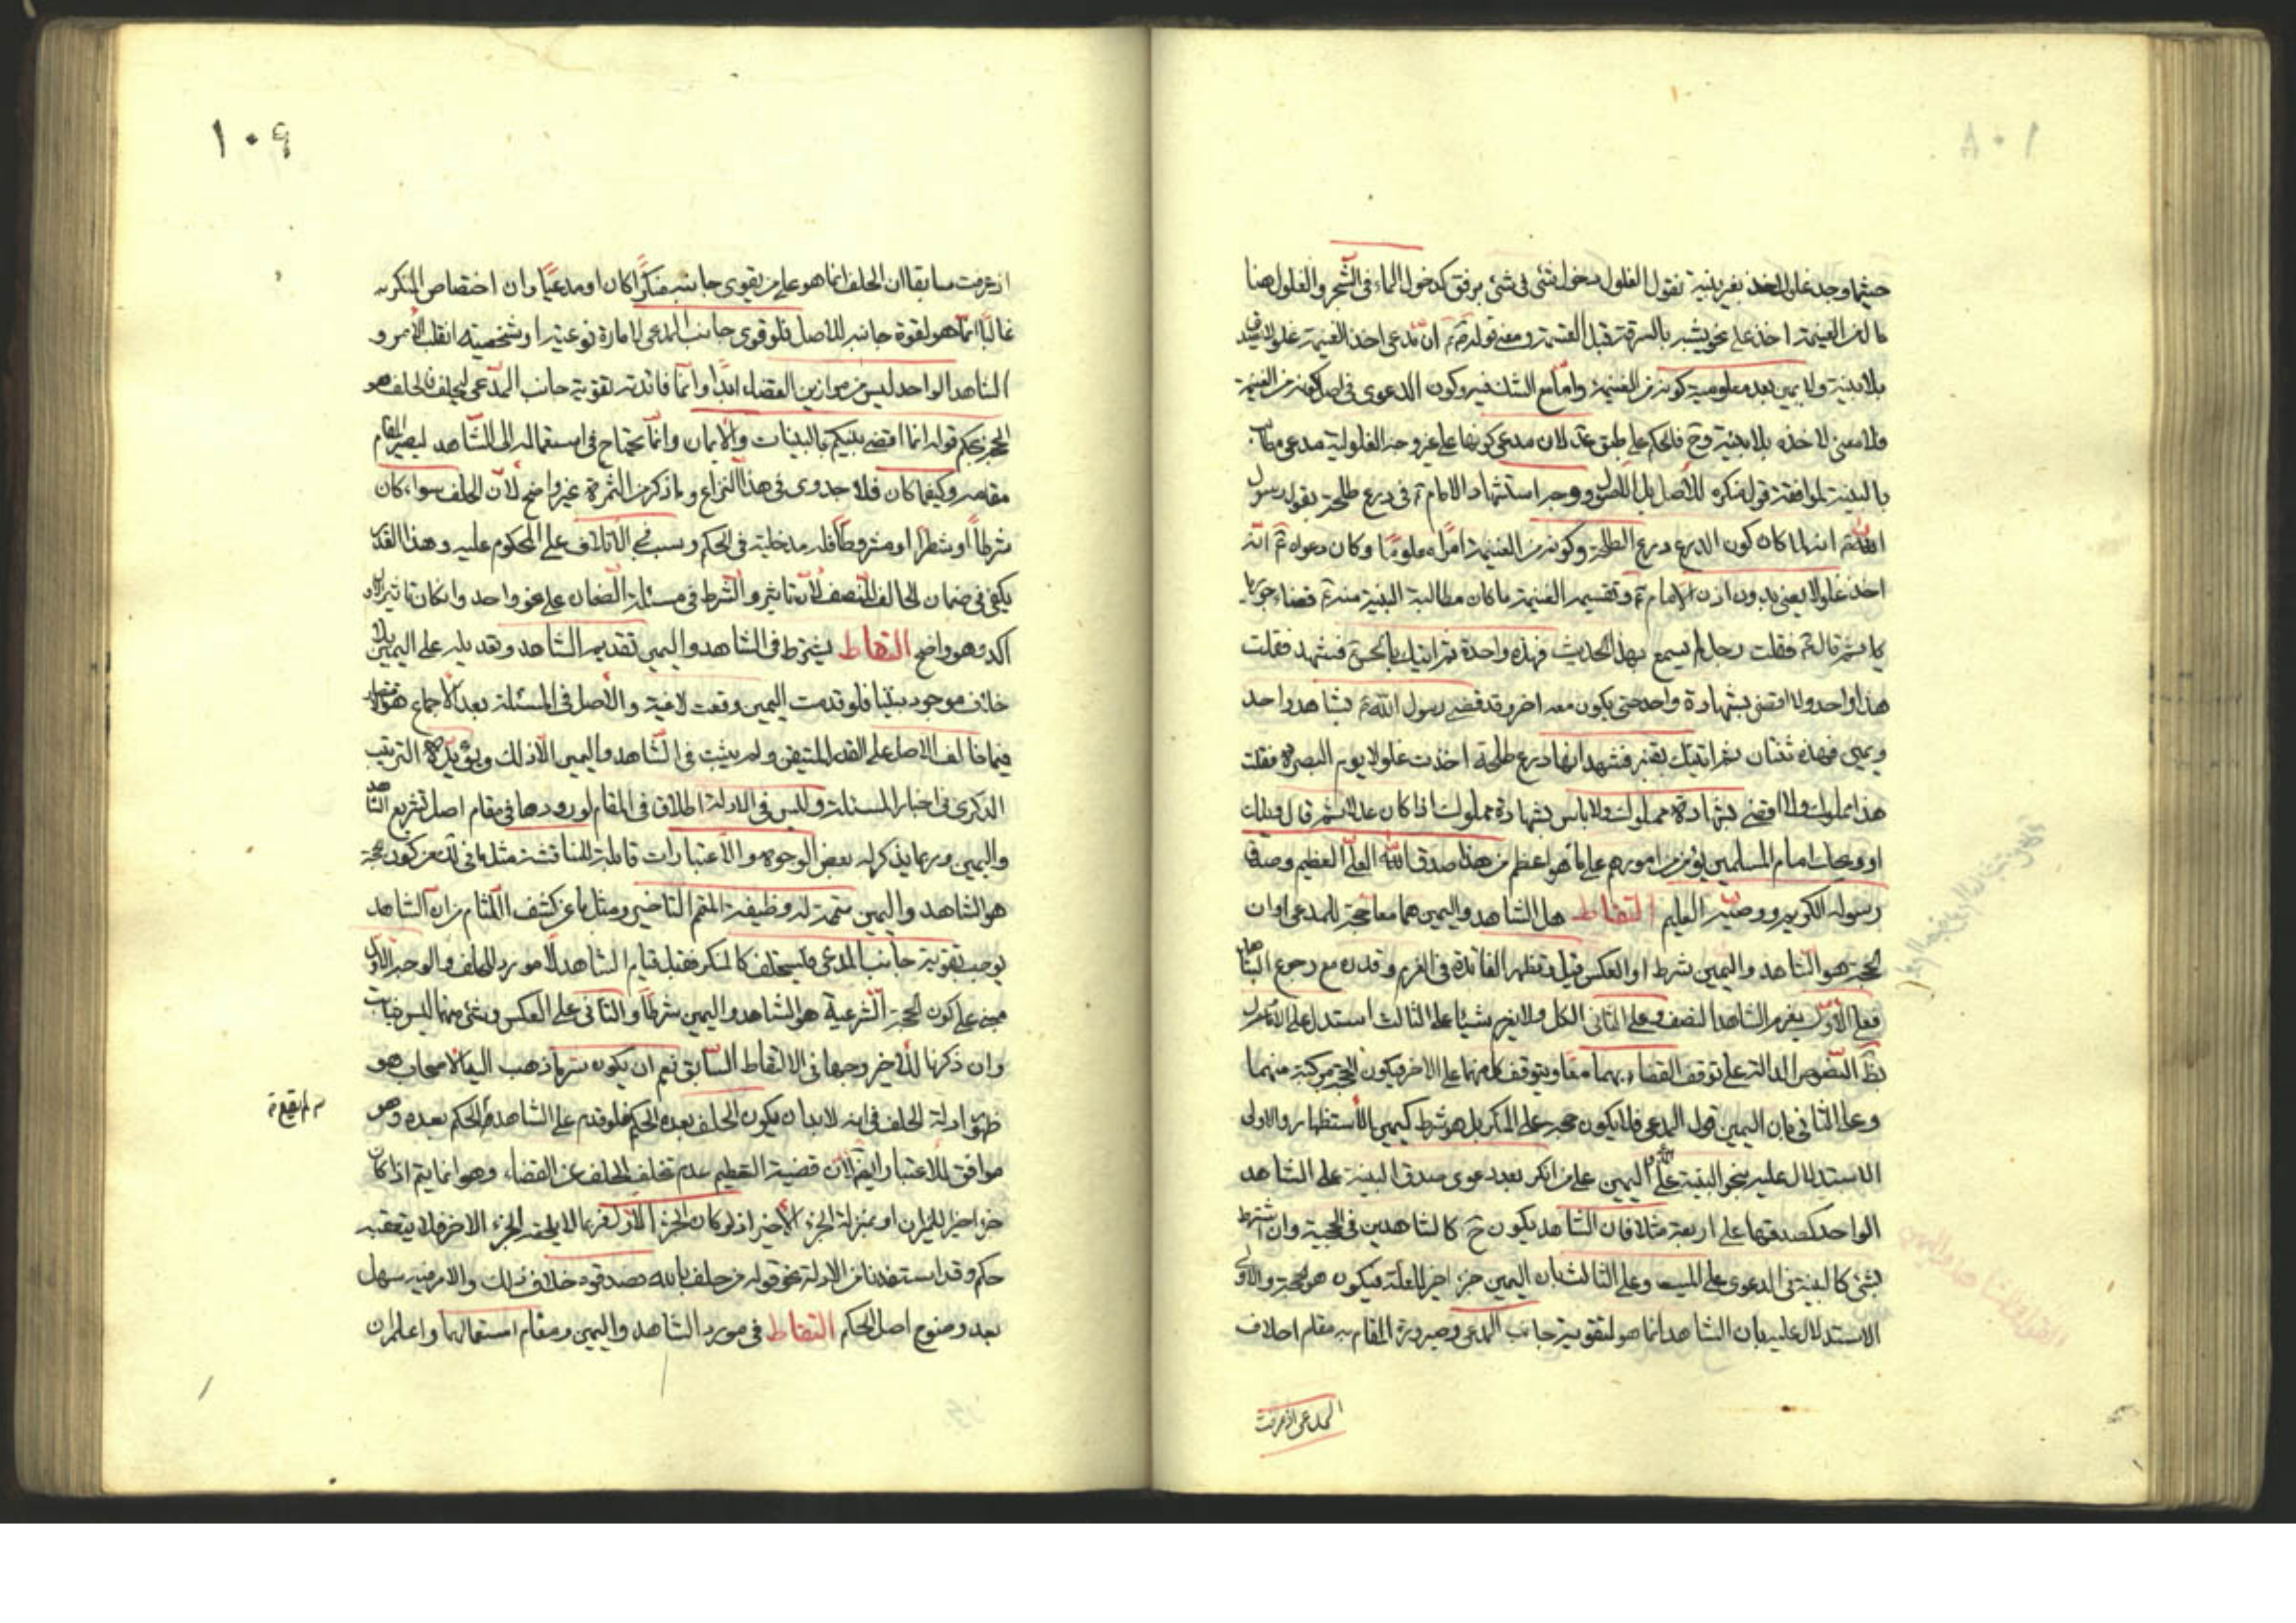 حيثما وجد غلول اخذ بغير بينة نقول الغلول دخول شئ فى شئ برفق كدخول الماء فى الشجر والغلول هنا
مال من الغنيمة اخذ على نحو يشبه بالسرقة قبل القسمة ومعنى قوله ع ان مدعى اخذ الغنيمة غلولا
بلا بينة ولا يمين بعد معلومية كونه من الغنيمة واما مع الشك فيه وكون الدعوى فى اصل كونه من الغنيمة
فلا معنى لاخذه بلا بينة وح فالحكم على طبق لان مدعى كونها على غير وجه الغلولية مدعى مطالب
بالبينة لموافقة قول منكره للأصل بل الأصول ووجه استشهاد الامام ع فى درع طلحة بقول رسول
الله ص انه لما كان كون الدرع درع الطلحة وكونه من الغنيمة امرا معلوما وكان دعواه ع انه
اخذ غلولا يعنى بدون اذن الامام ع وتقسيم الغنيمة ما كان مطالبة البينة منه ع قضاء
كما ثم قال ع فقلت رجل لم يسمع بهذا الحديث فهذه واحدة ثم اتيتك بالحسن فشهد فقلت
هذا واحد ولا اقضى بشهادة واحد حتى يكون معه اخر وقد قضى رسول الله ص بشاهد واحد
ويمين فهذه ثنتان ثم اتيتك بقنبر فشهد انها درع طلحة اخذت غلولا يوم البصرة فقلت
هذا مملوك ولا اقضى بشهادة مملوك ولا باس بشهادة مملوك اذا كان عدلا ثم قال ويلك
او ويحك امام المسلمين يؤمن من امورهم على ما هو اعظم من هذا صدق الله العلى العظيم وصدق
رسوله الكريم ووصيه العليم التقاط هل الشاهد واليمين هما معا حجة للمدعى او ان
الحجة هو الشاهد واليمين شرط او العكس قيل وتظهر الفائدة فى الغرم وقدره مع رجوع الشاهد
فعلى الأول يغرم الشاهد النصف وعلى الثانى الكل ولا يغرم شيئا على الثالث استدل على الأول
بظ النصوص الدالة على توقف القضاء بهما معا ويتوقف كل منهما على الاخر فيكون الحجة مركبة منهما
وعلى الثانى بان اليمين قول المدعى فلا يكون حجة على المنكر بل هو شرط كيمين الأستظهار والاولى
الاستدلال عليه بنحو البينة على المدعى واليمين على من انكر بعد دعوى صدق البينة على الشاهد
الواحد كصدقها على اربعة مثلا فان الشاهد يكون ح كالشاهدين فى الحجية وان اشترط
بشئ كالبينة فى الدعوى على الميت وعلى الثالث بان اليمين جزء اخير للعلة فيكون هو الحجة والأولى
الاستدلال عليه بان الشاهد انما هو لتقوية جانب المدعى وصيرورة المقام به مقام احلاف
المدعى اذ عرفت
١٠٩
اذ عرفت سابقا ان الحلف انما هو على من يقوى جانبه منكرا كان او مدعيا وان اختصاص المنكر به
غالبا انما هو لقوة جانبه للأصل فلو قوى جانب المدعى لامارة نوعية او شخصية انقلب الأمر و
الشاهد الواحد ليس من موازين القضاء ابدا وانما فائدته تقوية جانب المدعى ليحلف فالحلف هو
الحجة بحكم قوله انما اقضى بينكم بالبينات والايمان وانما يحتاج فى استعماله الى الشاهد ليصير المقام
مقامه وكيفما كان فلا جدوى فى هذا النزاع وما ذكر من الثمرة غير واضح لأن الحلف سواء كان
شرطا او شطرا او مشروطا فله مدخلية فى الحكم وسبب فى الاتلاف على المحكوم عليه وهذا القدر
يكفى فى ضمان الحالف النصف لأن تاثير والشرط فى مسئلة الضمان على نحو واحد وان كان تاثير الاول
اكد وهو واضح التقاط يشترط فى الشاهد واليمين تقديم الشاهد وتعديله على اليمين بلا
خلاف موجود بيننا فلو قدمت اليمين وقعت لاغية والأصل فى المسئلة بعد الأجماع هو الاقتصار
فيما خالف الاصل على القدر المتيقن ولم يثبت فى الشاهد واليمين الا ذلك ويؤيده الترتيب
الذكرى فى اخبار المسئلة وليس فى الادلة اطلاق فى المقام لورودها فى مقام اصل تشريع الشاهد
واليمين وربما يذكر له بعض الوجوه والأعتبارات قابلة للمناقشة مثل ما فى لك من كون حجة
هو الشاهد واليمين متممة له ووظيفة المتمم التاخير ومثل ما عن كشف اللثام من ان الشاهد
يوجب تقوية جانب المدعى فيستحلف كالمنكر فقبل قيام الشاهد لا مورد للحلف والوجه الأول
مبنى على كون الحجة الشرعية هو الشاهد واليمين شرطا والثانى على العكس وشئ منهما ليس بثابت
وان ذكرنا للأخير وجها فى الالتقاط السابق نعم ان يكون سر ما ذهب اليه الاصحاب هو
ظهور ادلة الحلف فى انه لابد ان يكون الحلف بعده الحكم فلو قدم على الشاهد لم الحكم بعده وهو
موافق للاعتبار ايضا لأن قضية التعظيم عدم تخلف الحلف عن القضاء وهو انما يتم اذا كان
جزء اخيرا للميزان او بمنزلة الجزء الأخير اذ لو كان الجزء الأول فربما لا يلحقه الجزء الاخر فلا يتعقبه
حكم وقد استفدنا من الادلة نحو قوله من حلف بالله فصدقوه خلاف ذلك والامر فيه سهل
بعد وضوح اصل الحكم التقاط فى مورد الشاهد واليمين ومقام استعمالهما واعلم ان